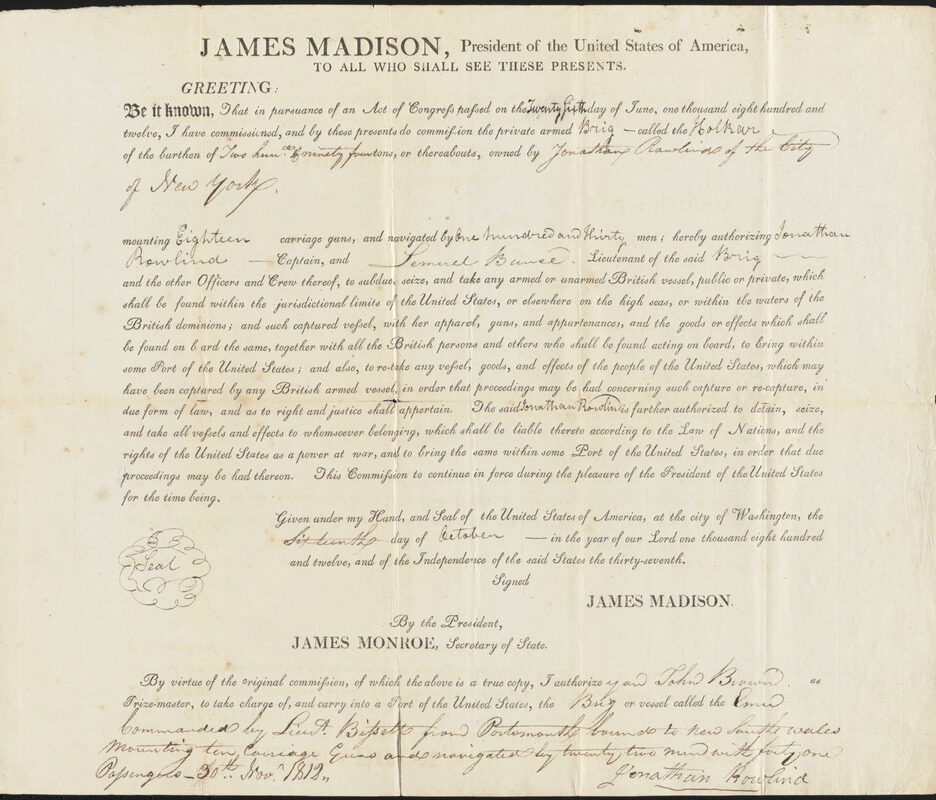 JAMES MADISON, President of the United States of America,
TO ALL WHO SHALL SEE THESE PRESENTS.
GREETING:
Be it known, That in pursuance of an Act of Congress passed on the Twenty Sixth day of June, one thousand eight hundred and
twelve, I have commissioned, and by these presents do commission the private armed Brig — called the Holkar
of the burthen of Two hund & ninety four tons, or thereabouts, owned by Jonathan Rowlind of the City
of New York.
mounting Eighteen carriage guns, and navigated by One hundred and thirty men; hereby authorizing Jonathan
Rowlind — Captain, and Lemuel Lieutenant of the said Brig —
and the other Officers and Crew thereof, to subdue, seize, and take any armed or unarmed British vessel, public or private, which
shall be found within the jurisdictional limits of the United States, or elsewhere on the high seas, or within the waters of the
British dominions; and such captured vessel, with her apparel, guns, and appurtenances, and the goods or effects which shall
be found on b ard the same, together with all the British persons and others who shall be found acting on board, to bring within
some Port of the United States; and also, to re-take any vessel, goods, and effects of the people of the United States, which may
have been captured by any British armed vessel, in order that proceedings may be had concerning such capture or re-capture, in
due form of law, and as to right and justice shall appertain. The said Jonathan Rowlind is further authorized to detain, seize,
and take all vessels and effects to whomsoever belonging, which shall be liable thereto according to the Law of Nations, and the
rights of the United States as a power at war, and to bring the same within some Port of the United States, in order that due
proceedings may be had thereon. This Commission to continue in force during the pleasure of the President of the United States
for the time being.
Given under my Hand, and Seal of the United States of America, at the city of Washington, the
Sixteenth day of October — in the year of our Lord one thousand eight hundred
and twelve, and of the Independence of the said States the thirty-seventh.
Seal
Signed
JAMES MADISON.
By the President,
JAMES MONROE, Secretary of State.
By virtue of the original commission, of which the above is a true copy, I authorize you John Brown as
Prize-master, to take charge of, and carry into a Port of the United States, the Brig or vessel called the Emu
Commanded by Lieut. Bissett from Portsmouth bound to New South Wales
Mounting ten Carriage Guns and navigated by twenty two men with forty one
Passengers — 30th Nov. 1812.
Jonathan Rowlind